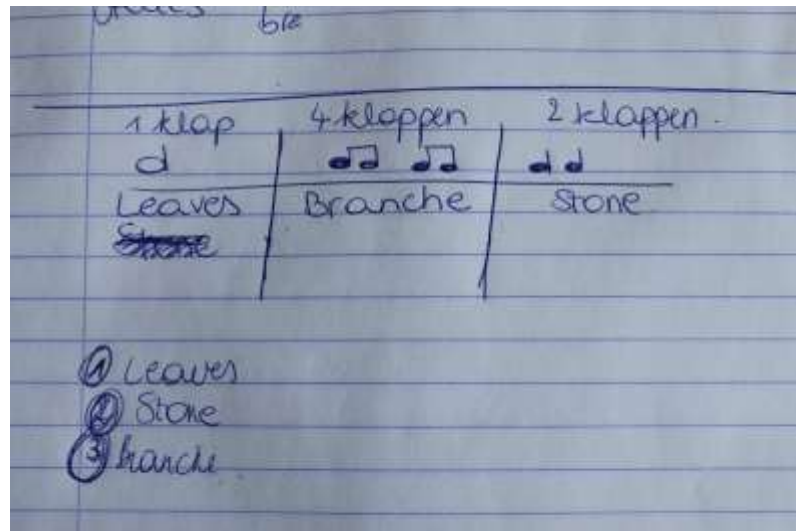 1 klap 4 klappen 2 klappen.
Leaves Branche Stone
① Leaves
② Stone
③ Branche